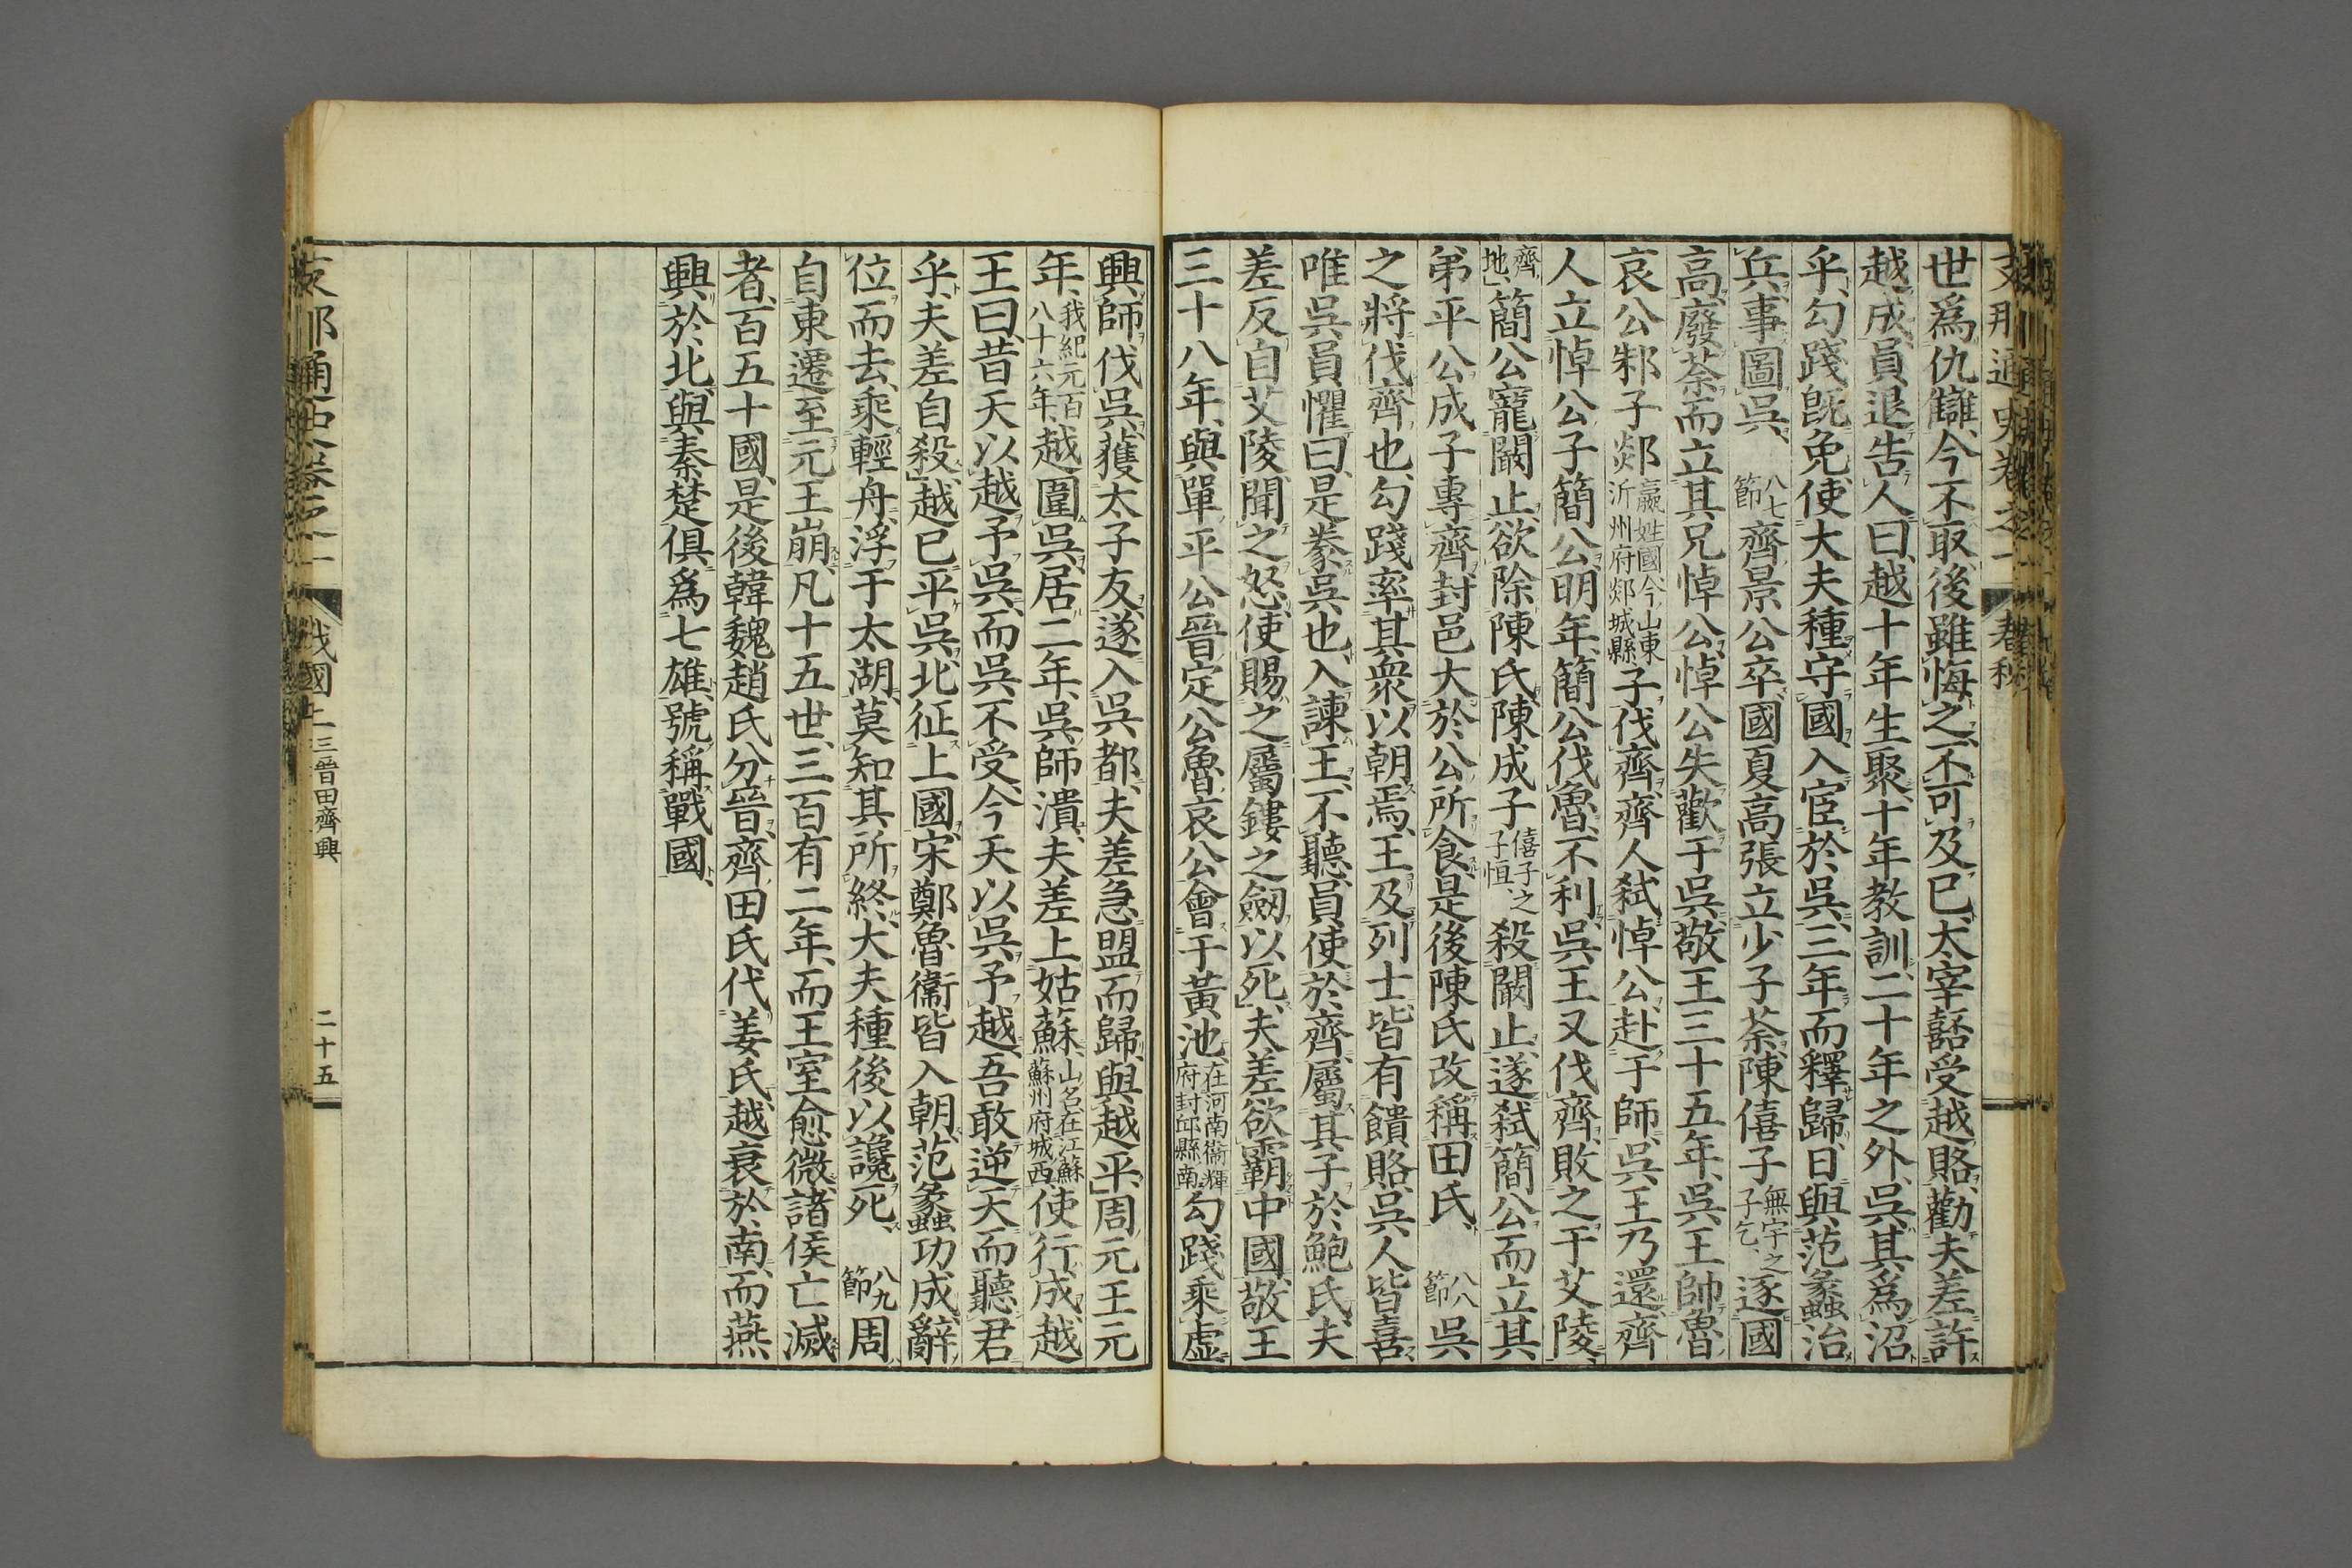 支那通史卷之一 春秋
世爲仇讎、今不取、後雖悔之、不可及已、太宰嚭受越賂、勸夫差許
越成、員退告人曰、越十年生聚、十年教訓、二十年之外、吳其爲沼
乎、勾踐既免、使大夫種守國、入宦於吳、三年而釋歸、日與范蠡治
兵、事圖吳、八七節齊景公卒、國夏高張立少子荼、陳僖子無宇之子乞、逐國
高、廢荼而立其兄悼公、悼公失歡于吳、敬王三十五年、吳王帥魯
哀公邾子郯嬴姓國今山東沂州府郯城縣子伐齊、齊人弑悼公、赴于師、吳王乃還、齊
人立悼公子簡公、明年、簡公伐魯、不利、吳王又伐齊、敗之于艾陵、
齊地、簡公寵闞止、欲除陳氏、陳成子僖子之子恒、殺闞止、遂弑簡公而立其
弟平公、成子專齊、封邑大於公所食、是後陳氏改稱田氏、八八節吳
之將伐齊也、勾踐率其衆以朝焉、王及列士皆有饋賂、吳人皆喜、
唯吳員懼曰、是豢吳也、入諫王、不聽、員使於齊、屬其子於鮑氏、夫
差反自艾陵、聞之怒、使賜之屬鏤之劒以死、夫差欲霸中國、敬王
三十八年、與單平公晉定公魯哀公會于黃池、在河南衞輝府封邱縣南、勾踐乘虛
興師伐吳、獲太子友、遂入吳都、夫差急盟而歸、與越平、周元王元
年、我紀元百八十六年、越圍吳、居二年、吳師潰、夫差上姑蘇、山名在江蘇蘇州府城西、使行成、越
王曰、昔天以越予吳、而吳不受、今天以吳予越、吾敢逆天而聽君
乎、夫差自殺、越已平吳、北征上國、宋鄭魯衞皆入朝、范蠡功成、辭
位而去、乘輕舟、浮于太湖、莫知其所終、大夫種後以讒死、八九節周
自東遷至元王崩、凡十五世、三百有二年、而王室愈微、諸侯亡滅
者、百五十國、是後韓魏趙氏分晉、齊田氏代姜氏、越衰於南、而燕
興於北、與秦楚俱爲七雄、號稱戰國、
支那通史卷之一 戰國上 三晉田齊興 二十五